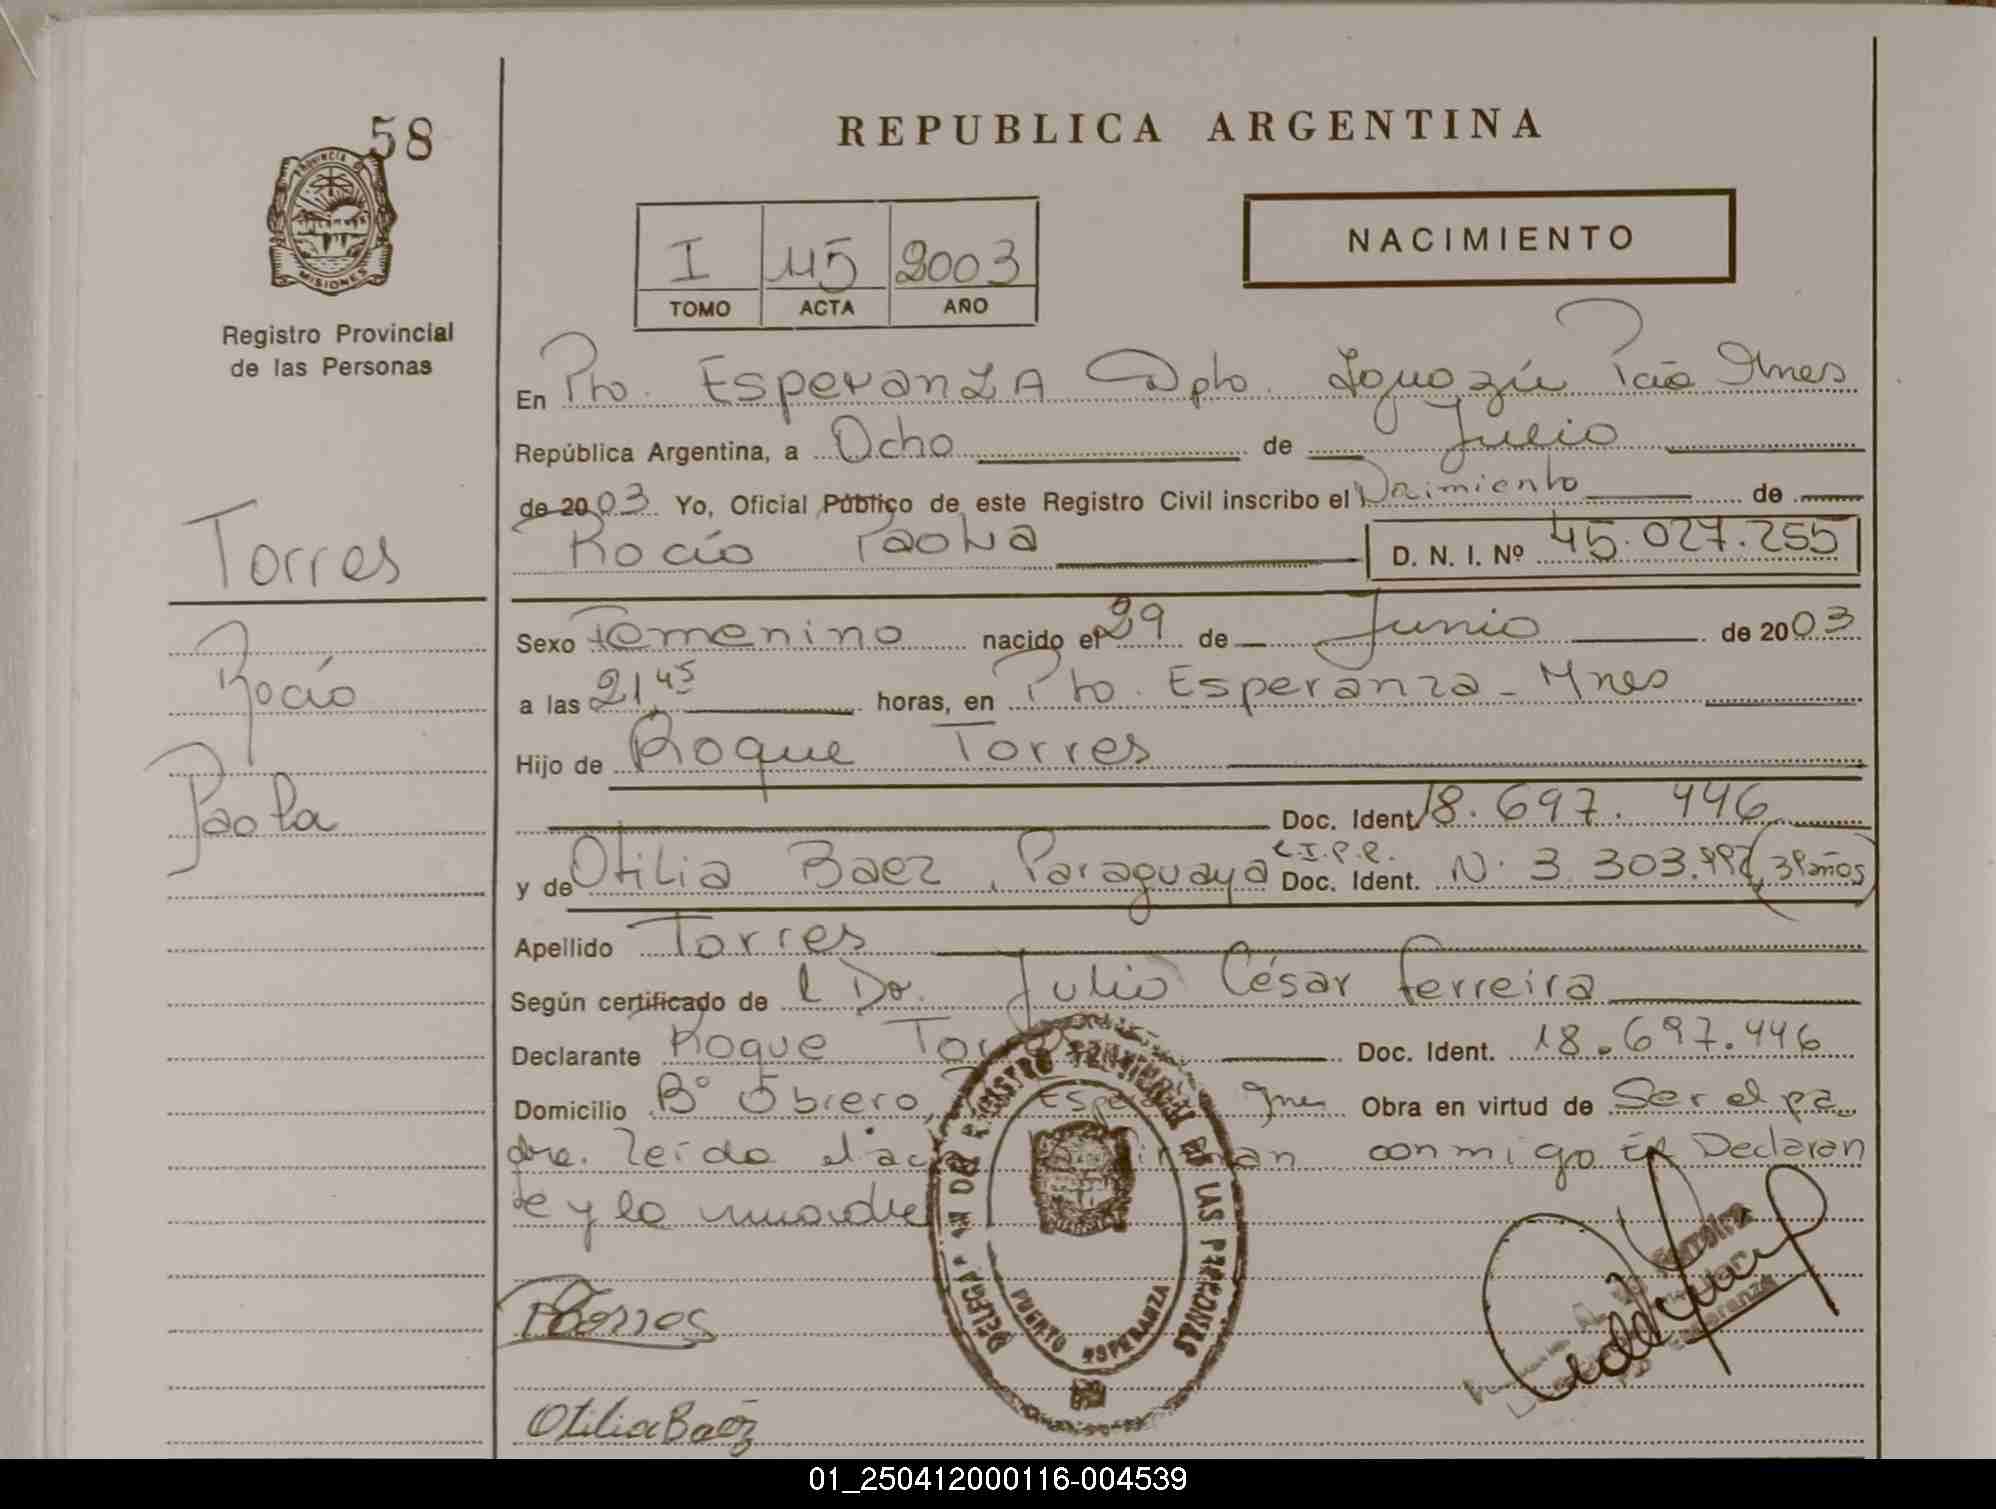 58
PROVINCIA DE
MISIONES
Registro Provincial
de las Personas
Torres
Rocío
Paola
REPUBLICA ARGENTINA
I 115 2003
TOMO ACTA AÑO
NACIMIENTO
En Pto. Esperanza Dpto. Iguazú Pcia Mnes
República Argentina, a Ocho de Julio
de 2003 Yo, Oficial Público de este Registro Civil inscribo el Nacimiento de
Rocío Paola D. N. I. Nº 45.027.255
Sexo Femenino nacido el 29 de Junio de 2003
a las 21,45 horas, en Pto. Esperanza - Mnes
Hijo de Roque Torres
Doc. Ident. 18.697.446
y de Otilia Baez, Paraguaya C.I.P.P. Doc. Ident. N. 3 303. (39 años)
Apellido Torres
Según certificado de l Dr. Julio César Ferreira
Declarante Roque Torres Doc. Ident. 18.697.446
Domicilio Bº Obrero, Esp Mnes Obra en virtud de Ser el pa
dre. Leída el ac firman conmigo El Declaran
te y la madre
RTorres
Otilia Baéz
DELEGA DEL REGISTRO PROVINCIAL DE LAS PERSONAS
PUERTO ESPERANZA
01_250412000116-004539